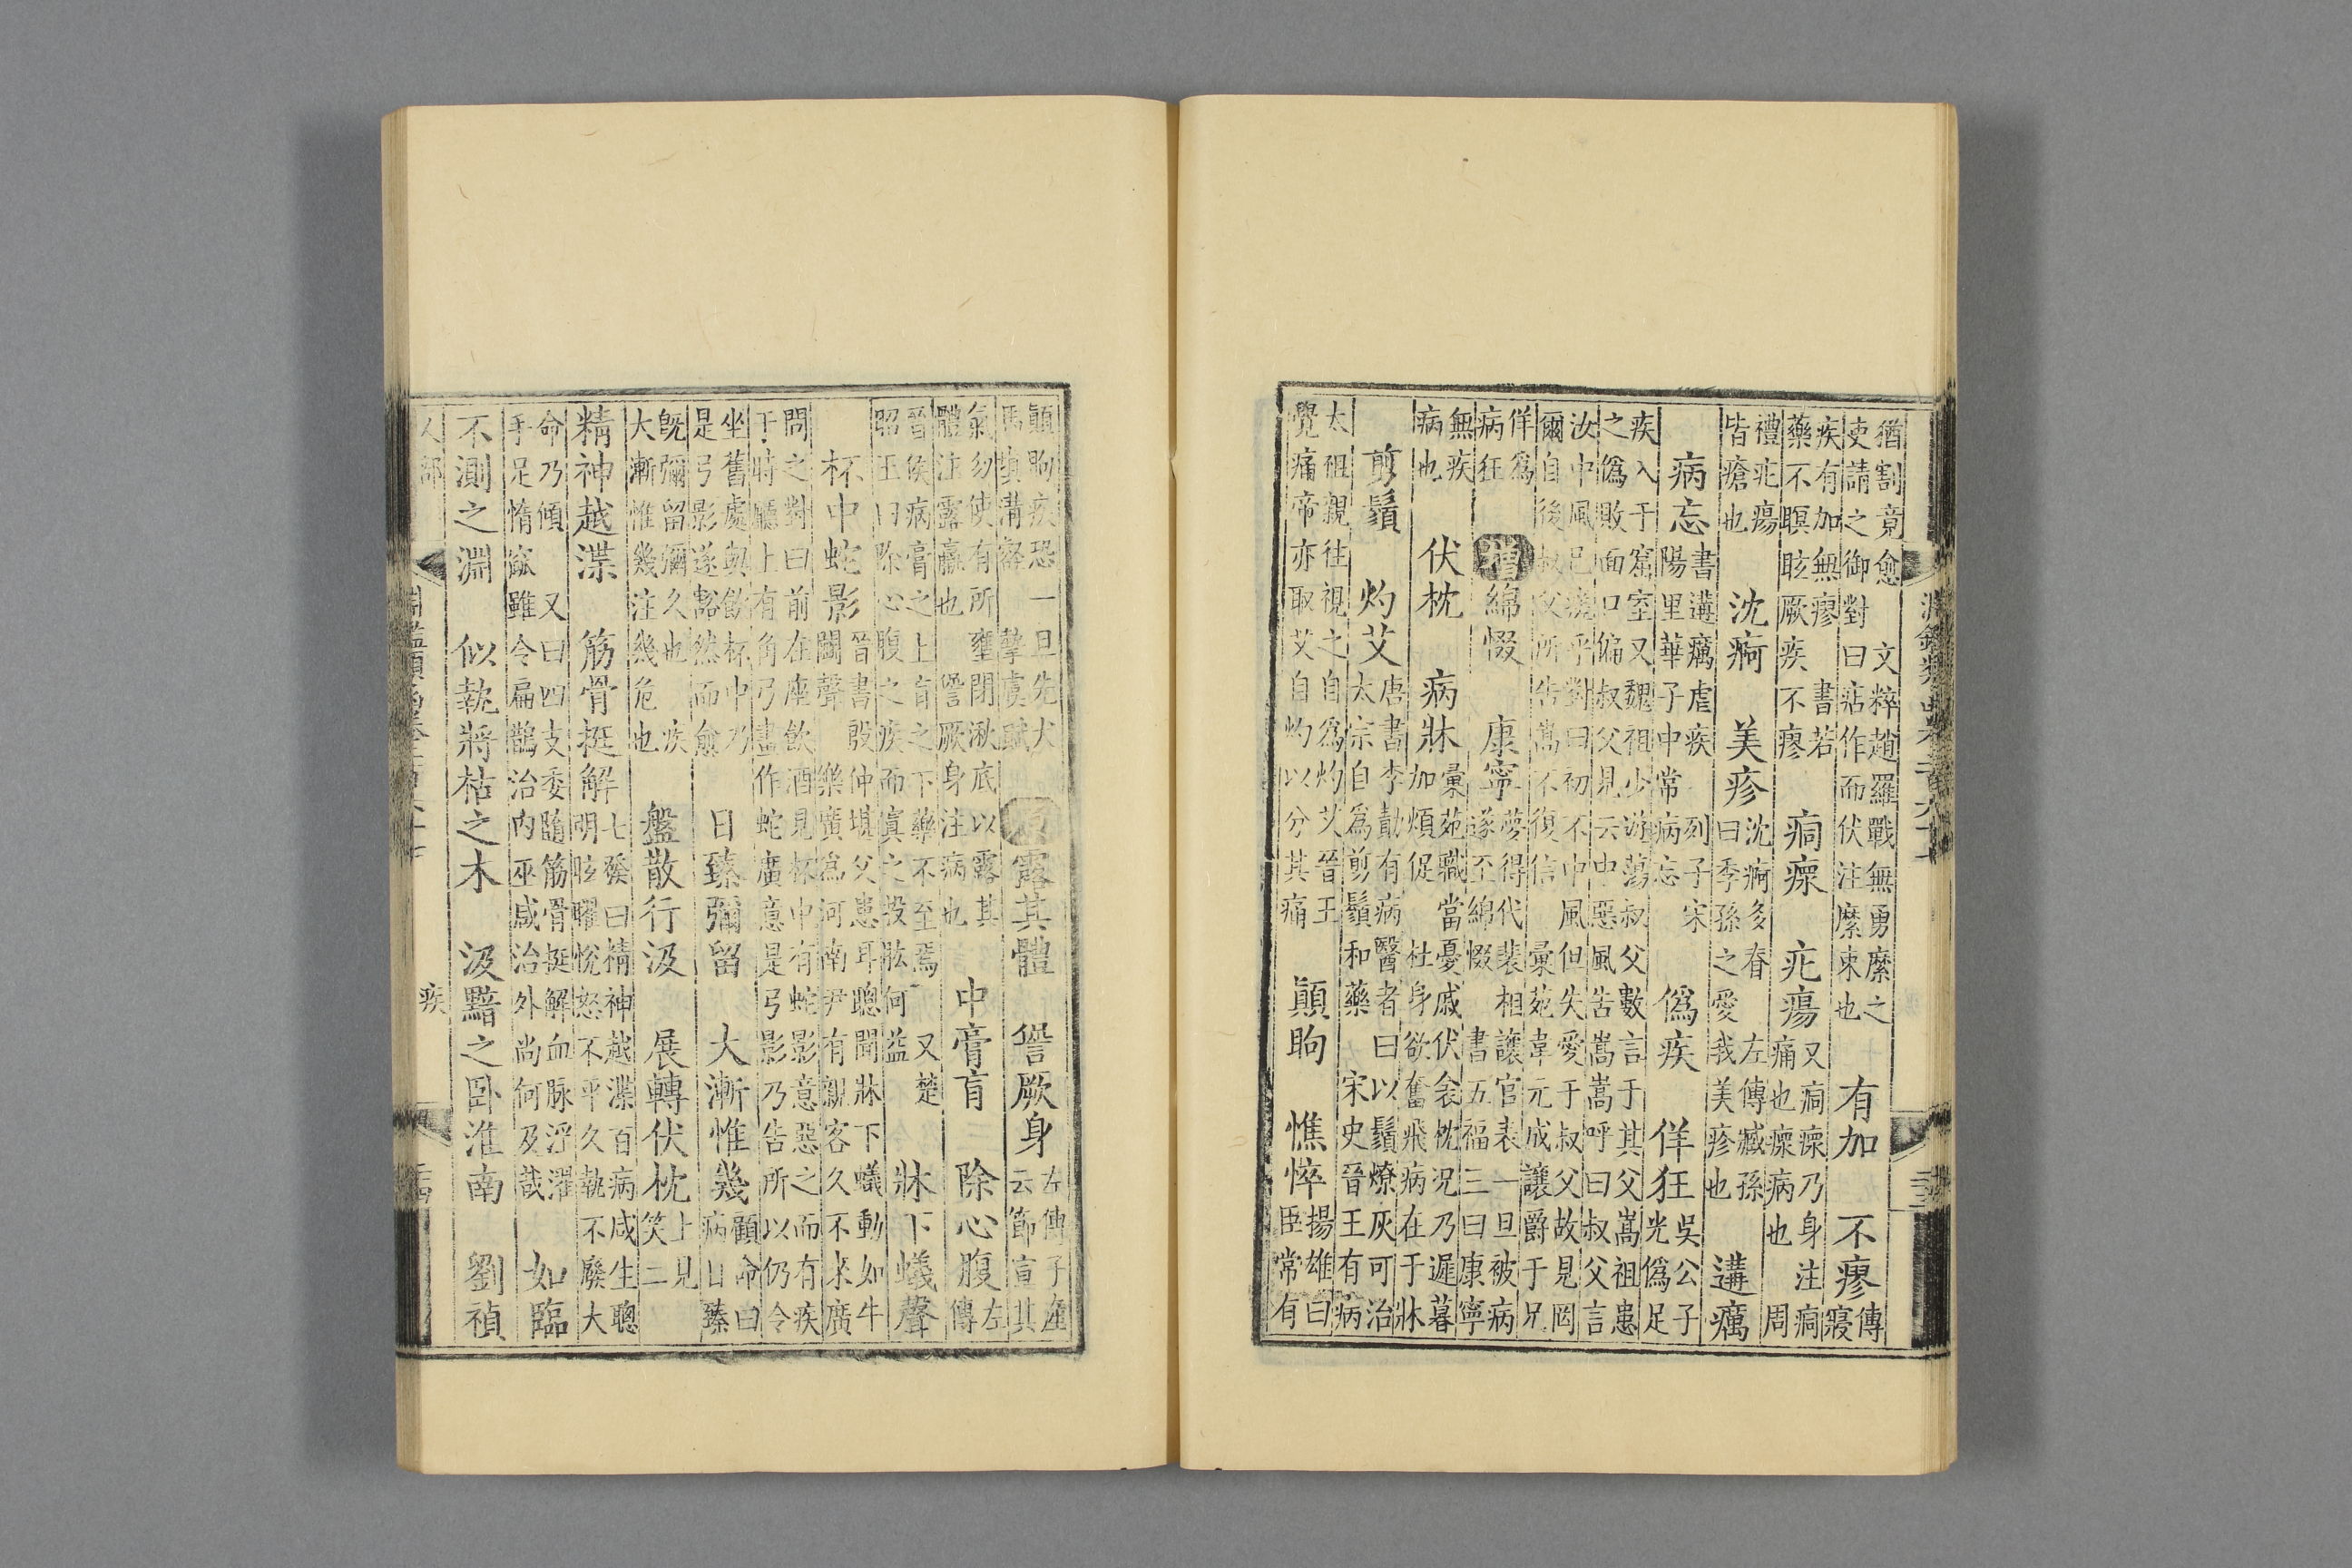 猶割竟愈　文粹趙羅戰無勇縻之
吏請之御對曰痁作而伏注縻束也
有加　不瘳　傳寢
疾有加無瘳　書若
藥不瞑眩厥疾不瘳
痌瘝　疕瘍　又痌瘝乃身注痌
痛也瘝病也　周
禮疕瘍
皆瘡也
沈痾　美疹　沈痾多春　左傳臧孫
曰季孫之愛我美疹也
遘癘
病忘　書遘癘虐疾　列子宋
陽里華子中常病忘
僞疾　佯狂　吳公子
光僞足
疾入于窟室又魏祖少游蕩叔父數言于其父嵩祖患
之僞敗面口偏叔父見云中惡風告嵩嵩呼曰叔父言
汝中風已瘥乎對曰初不中風但失愛于叔父故見罔
爾自後叔父所告嵩不復信　彙苑韋元成讓爵于兄
佯爲
病狂
增　綿惙　康寧　夢得代裴相讓官表一旦被病
遂至綿惙　書五福三曰康寧
無疾
病也
伏枕　病牀　彙苑職當憂戚伏衾枕況乃遲暮
加煩促　杜身欲奮飛病在于牀
剪鬚　灼艾　唐書李勣有病醫者曰以鬚燎灰可治
太宗自爲剪鬚和藥　宋史晉王有病
太祖親往視之自爲灼艾晉王
覺痛帝亦取艾自灼以分其痛
顚眴　憔悴　揚雄曰
臣常有
顚眴疾恐一旦先犬
馬塡溝壑　摯虞賦
原　露其體　訾厥身　左傳子產
云節宣其
氣勿使有所壅閉湫底以露其
體注露羸也　訾厥身注病也
中膏肓　除心腹　左
傳
晉侯病膏之上肓之下藥不至焉　又楚
昭王曰除心腹之疾而寘之股肱何益
牀下蟻聲
杯中蛇影　晉書殷仲堪父患耳聰聞牀下蟻動如牛
鬭聲　樂廣爲河南尹有親客久不來廣
問之對曰前在座飲酒見杯中有蛇影意惡之而有疾
于時廳上有角弓畫作蛇廣意是弓影乃告所以仍令
坐舊處與飲杯中乃
是弓影遂豁然而愈
日臻彌留　大漸惟幾　顧命曰
病日臻
旣彌留彌久也　疾
大漸惟幾注幾危也
盤散行汲　展轉伏枕　上見
笑二
精神越渫　筋骨挺解　七發曰精神越渫百病咸生聰
明眩曜悅怒不平久執不廢大
命乃傾　又曰四支委隨筋骨挺解血脉淫濯
手足惰窳雖令扁鵲治內巫咸治外尚何及哉
如臨
不測之淵　似執將枯之木　汲黯之臥淮南　劉禎
人部　疾